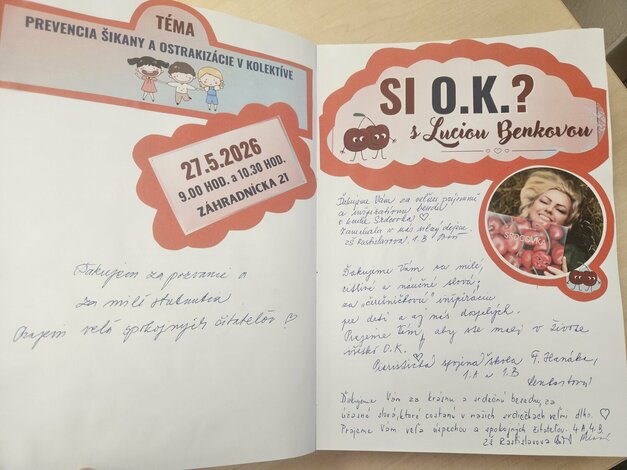 TÉMA
PREVENCIA ŠIKANY A OSTRAKIZÁCIE V KOLEKTÍVE
27.5.2026
9.00 HOD. a 10.30 HOD.
ZÁHRADNÍCKA 21
Ďakujem za pozvanie a
za milé stretnutia
Prajem veľa spokojných čitateľov
SI O.K.?
s Luciou Benkovou
SRDCOVKA
Ďakujeme Vám za veľmi príjemnú
a inšpiratívnu besedu
o knihe Srdcovka
Zanechala v nás silný dojem.
ZŠ Rastislavova, 1.B
Ďakujeme Vám za milé,
citlivé a náučné slová;
za inšpiráciu
pre deti a aj nás dospelých.
Prajeme Vám, aby ste mali v živote
všetko O.K.
Piaristická spojená škola F. Hanáka,
1.A a 1.B
Ďakujeme Vám za krásnu a srdečnú besedu, za
úžasné slová, ktoré zostanú v našich srdiečkach veľmi dlho.
Prajeme Vám veľa úspechov a spokojných čitateľov. 4.A, 4.B
ZŠ Rastislavova